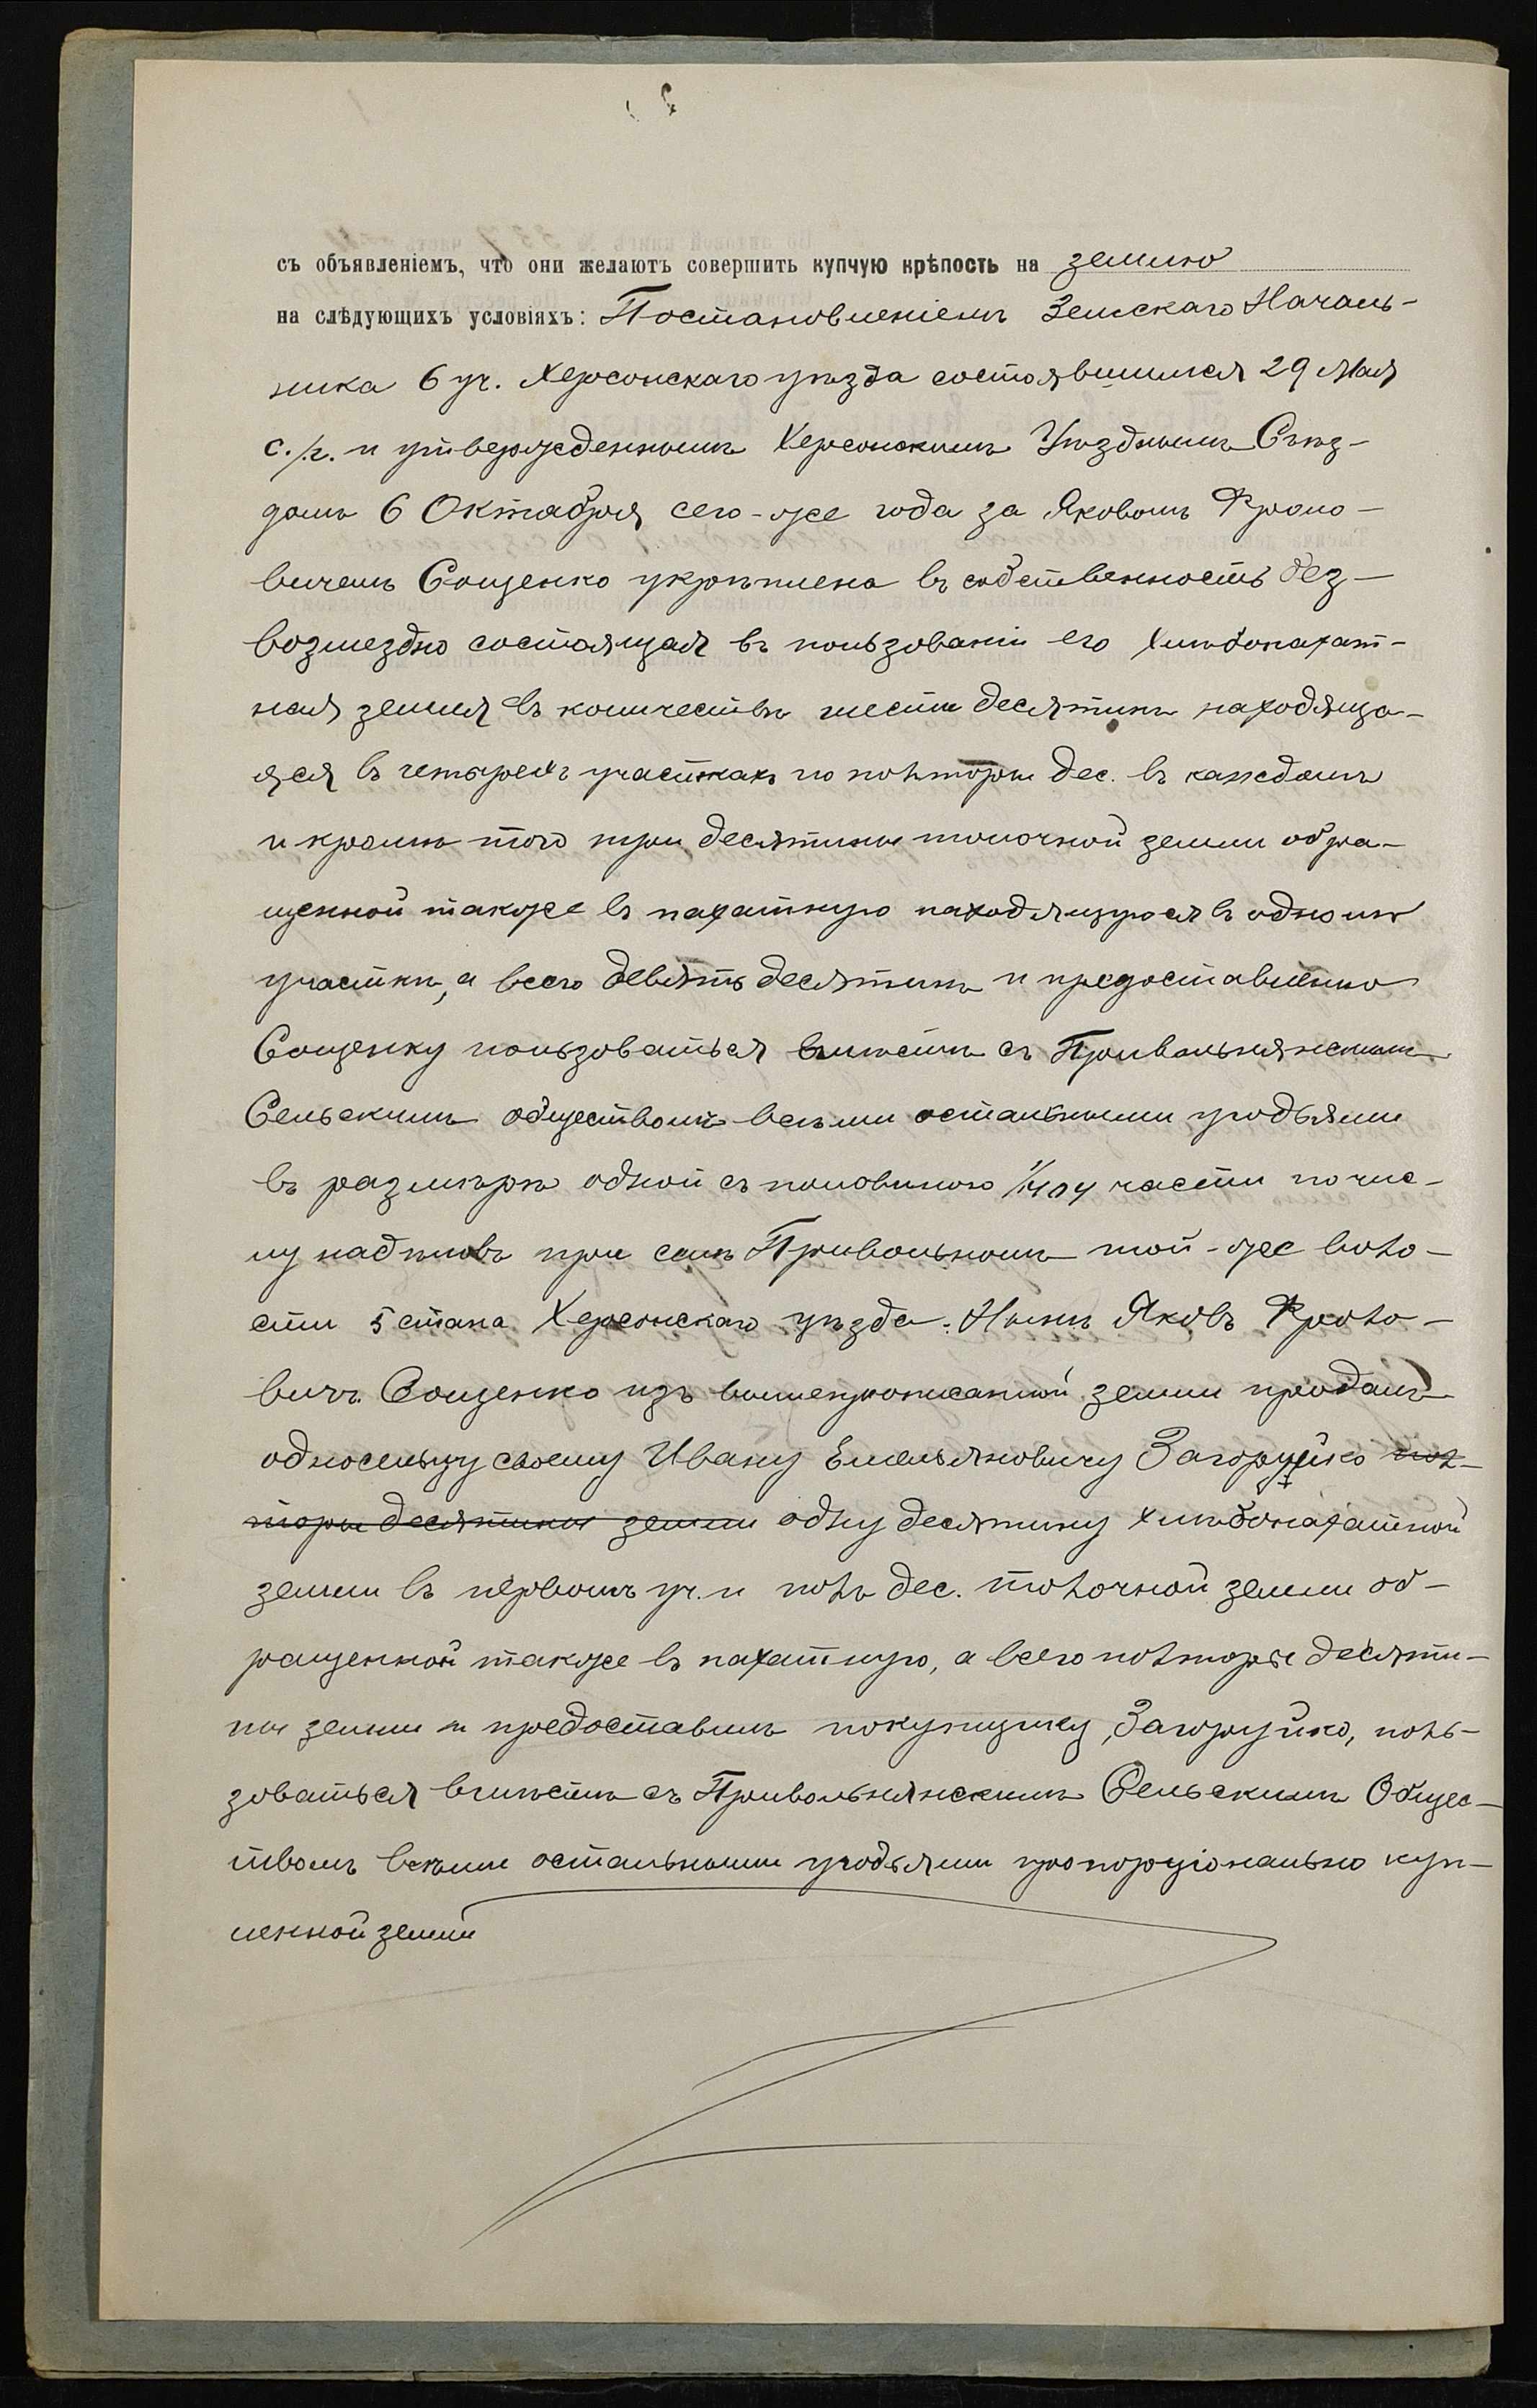 съ объявленіемъ, что они желаютъ совершить купчую крѣпость на землю
на слѣдующихъ условіяхъ: Постановленіемъ Земскаго Началь-
ника 6 уч. Херсонскаго уѣзда состоявшимся 29 Мая
с./г. и утвержденнымъ Херсонскимъ Уѣзднымъ Съѣз-
домъ 6 Октября сего-же года за Яковомъ Фроло-
вичемъ Сощенко укрѣплена въ собственность без-
возмездно состоящая въ пользованіи его хлѣбопахат-
ная земля въ количествѣ шести десятинъ находяща-
яся въ четырехъ участкахъ по полторы дес. въ каждомъ
и кромѣ того три десятины толочной земли обра-
щенной также въ пахатную находящуюся въ одномъ
участкѣ, а всего девять десятинъ и предоставлено
Сощенку пользоваться вмѣстѣ съ Привольнянскимъ
Сельскимъ обществомъ всѣми остальными угодьями
въ размѣрѣ одной съ половиною 1/1404 части по чис-
лу надѣловъ при селѣ Привольномъ той-же воло-
сти 5 стана Херсонскаго уѣзда. Нынѣ Яковъ Фроло-
вичъ Сощенко изъ вышепрописанной земли продалъ
односельцу своему Ивану Емельяновичу Загоруйко пол-
торы десятины земли одну десятину хлѣбопахатной
земли въ первомъ уч. и полъ дес. толочной земли об-
ращенной также въ пахатную, а всего полторы десяти-
ны земли и предоставилъ покупщику, Загоруйко, поль-
зоваться вмѣстѣ съ Привольнянскимъ Сельскимъ Общес-
твомъ всѣми остальными угодьями пропорціонально куп-
ленной земли